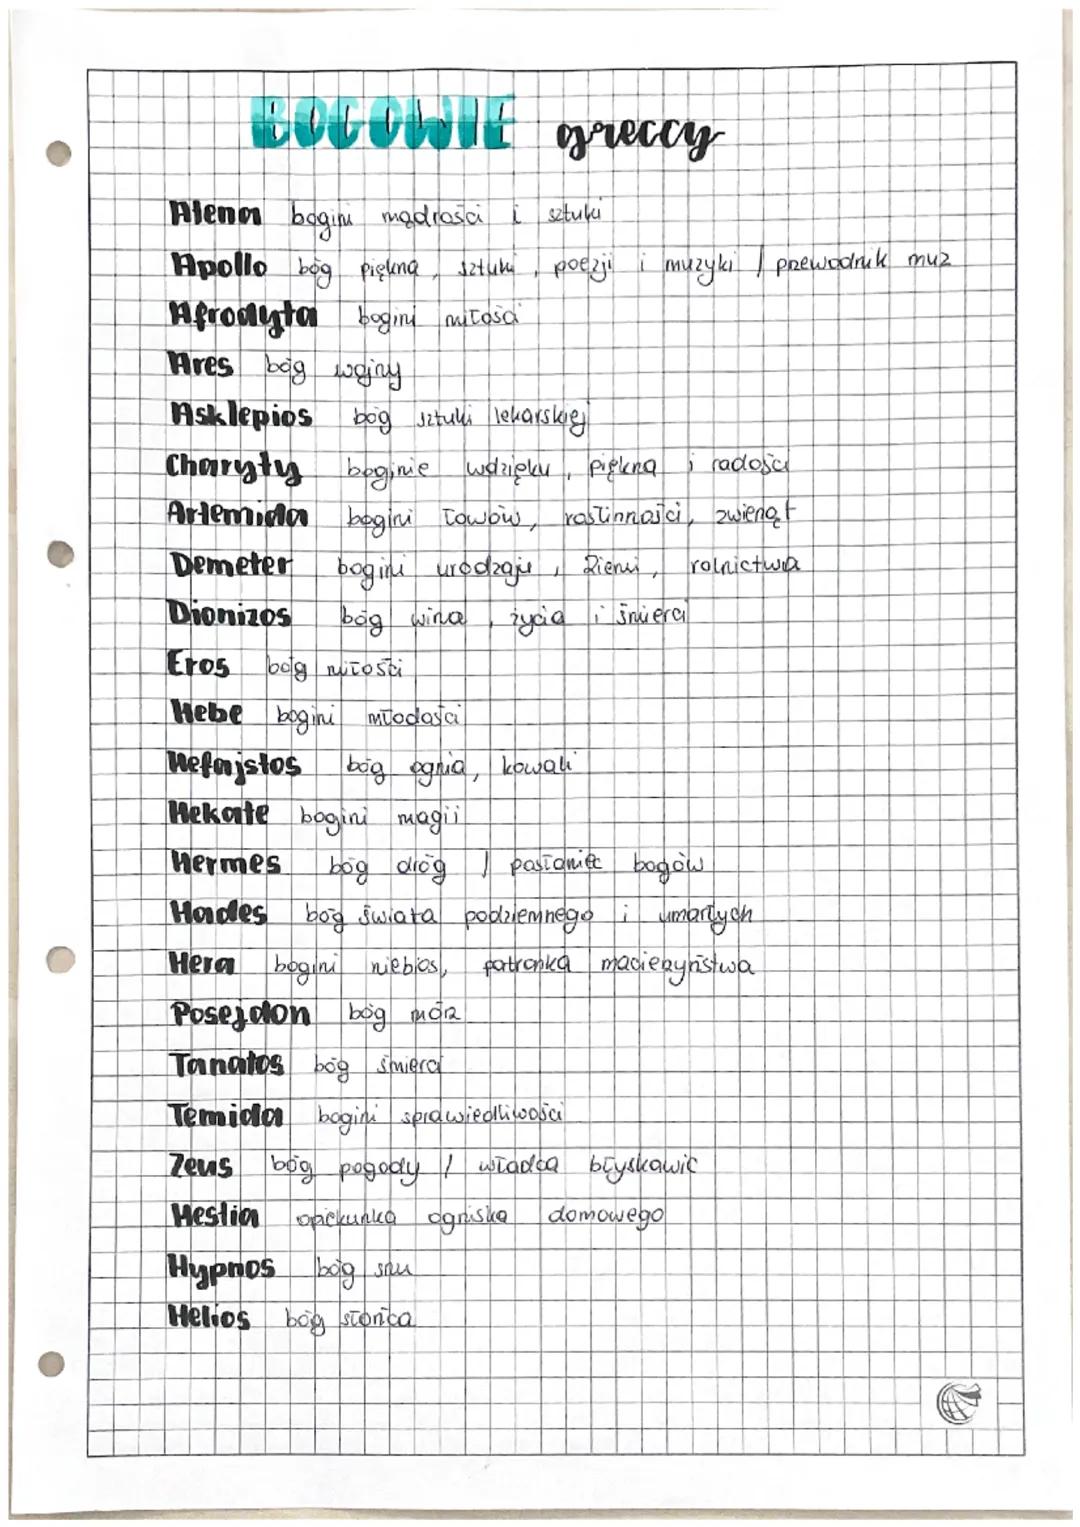 BOGOWIE greccy
Atena bogini mądrości i sztuki
Apollo bóg piękna, sztuki, poezji i muzyki / przewodnik muz
Afrodyta bogini miłości
Ares bóg wojny
Asklepios bóg sztuki lekarskiej
Charyty boginie wdzięku, piękna i radości
Artemida bogini łowów, roślinności, zwierząt
Demeter bogini urodzaju, ziemi, rolnictwa
Dionizos bóg wina, życia i śmierci
Eros bóg miłości
Hebe bogini młodości
Hefajstos bóg ognia, kowali
Hekate bogini magii
Hermes bóg dróg / posłaniec bogów
Hades bóg świata podziemnego i umarłych
Hera bogini niebios, patronka macierzyństwa
Posejdon bóg mórz
Tanatos bóg śmierci
Temida bogini sprawiedliwości
Zeus bóg pogody / władca błyskawic
Hestia opiekunka ogniska domowego
Hypnos bóg snu
Helios bóg słońca